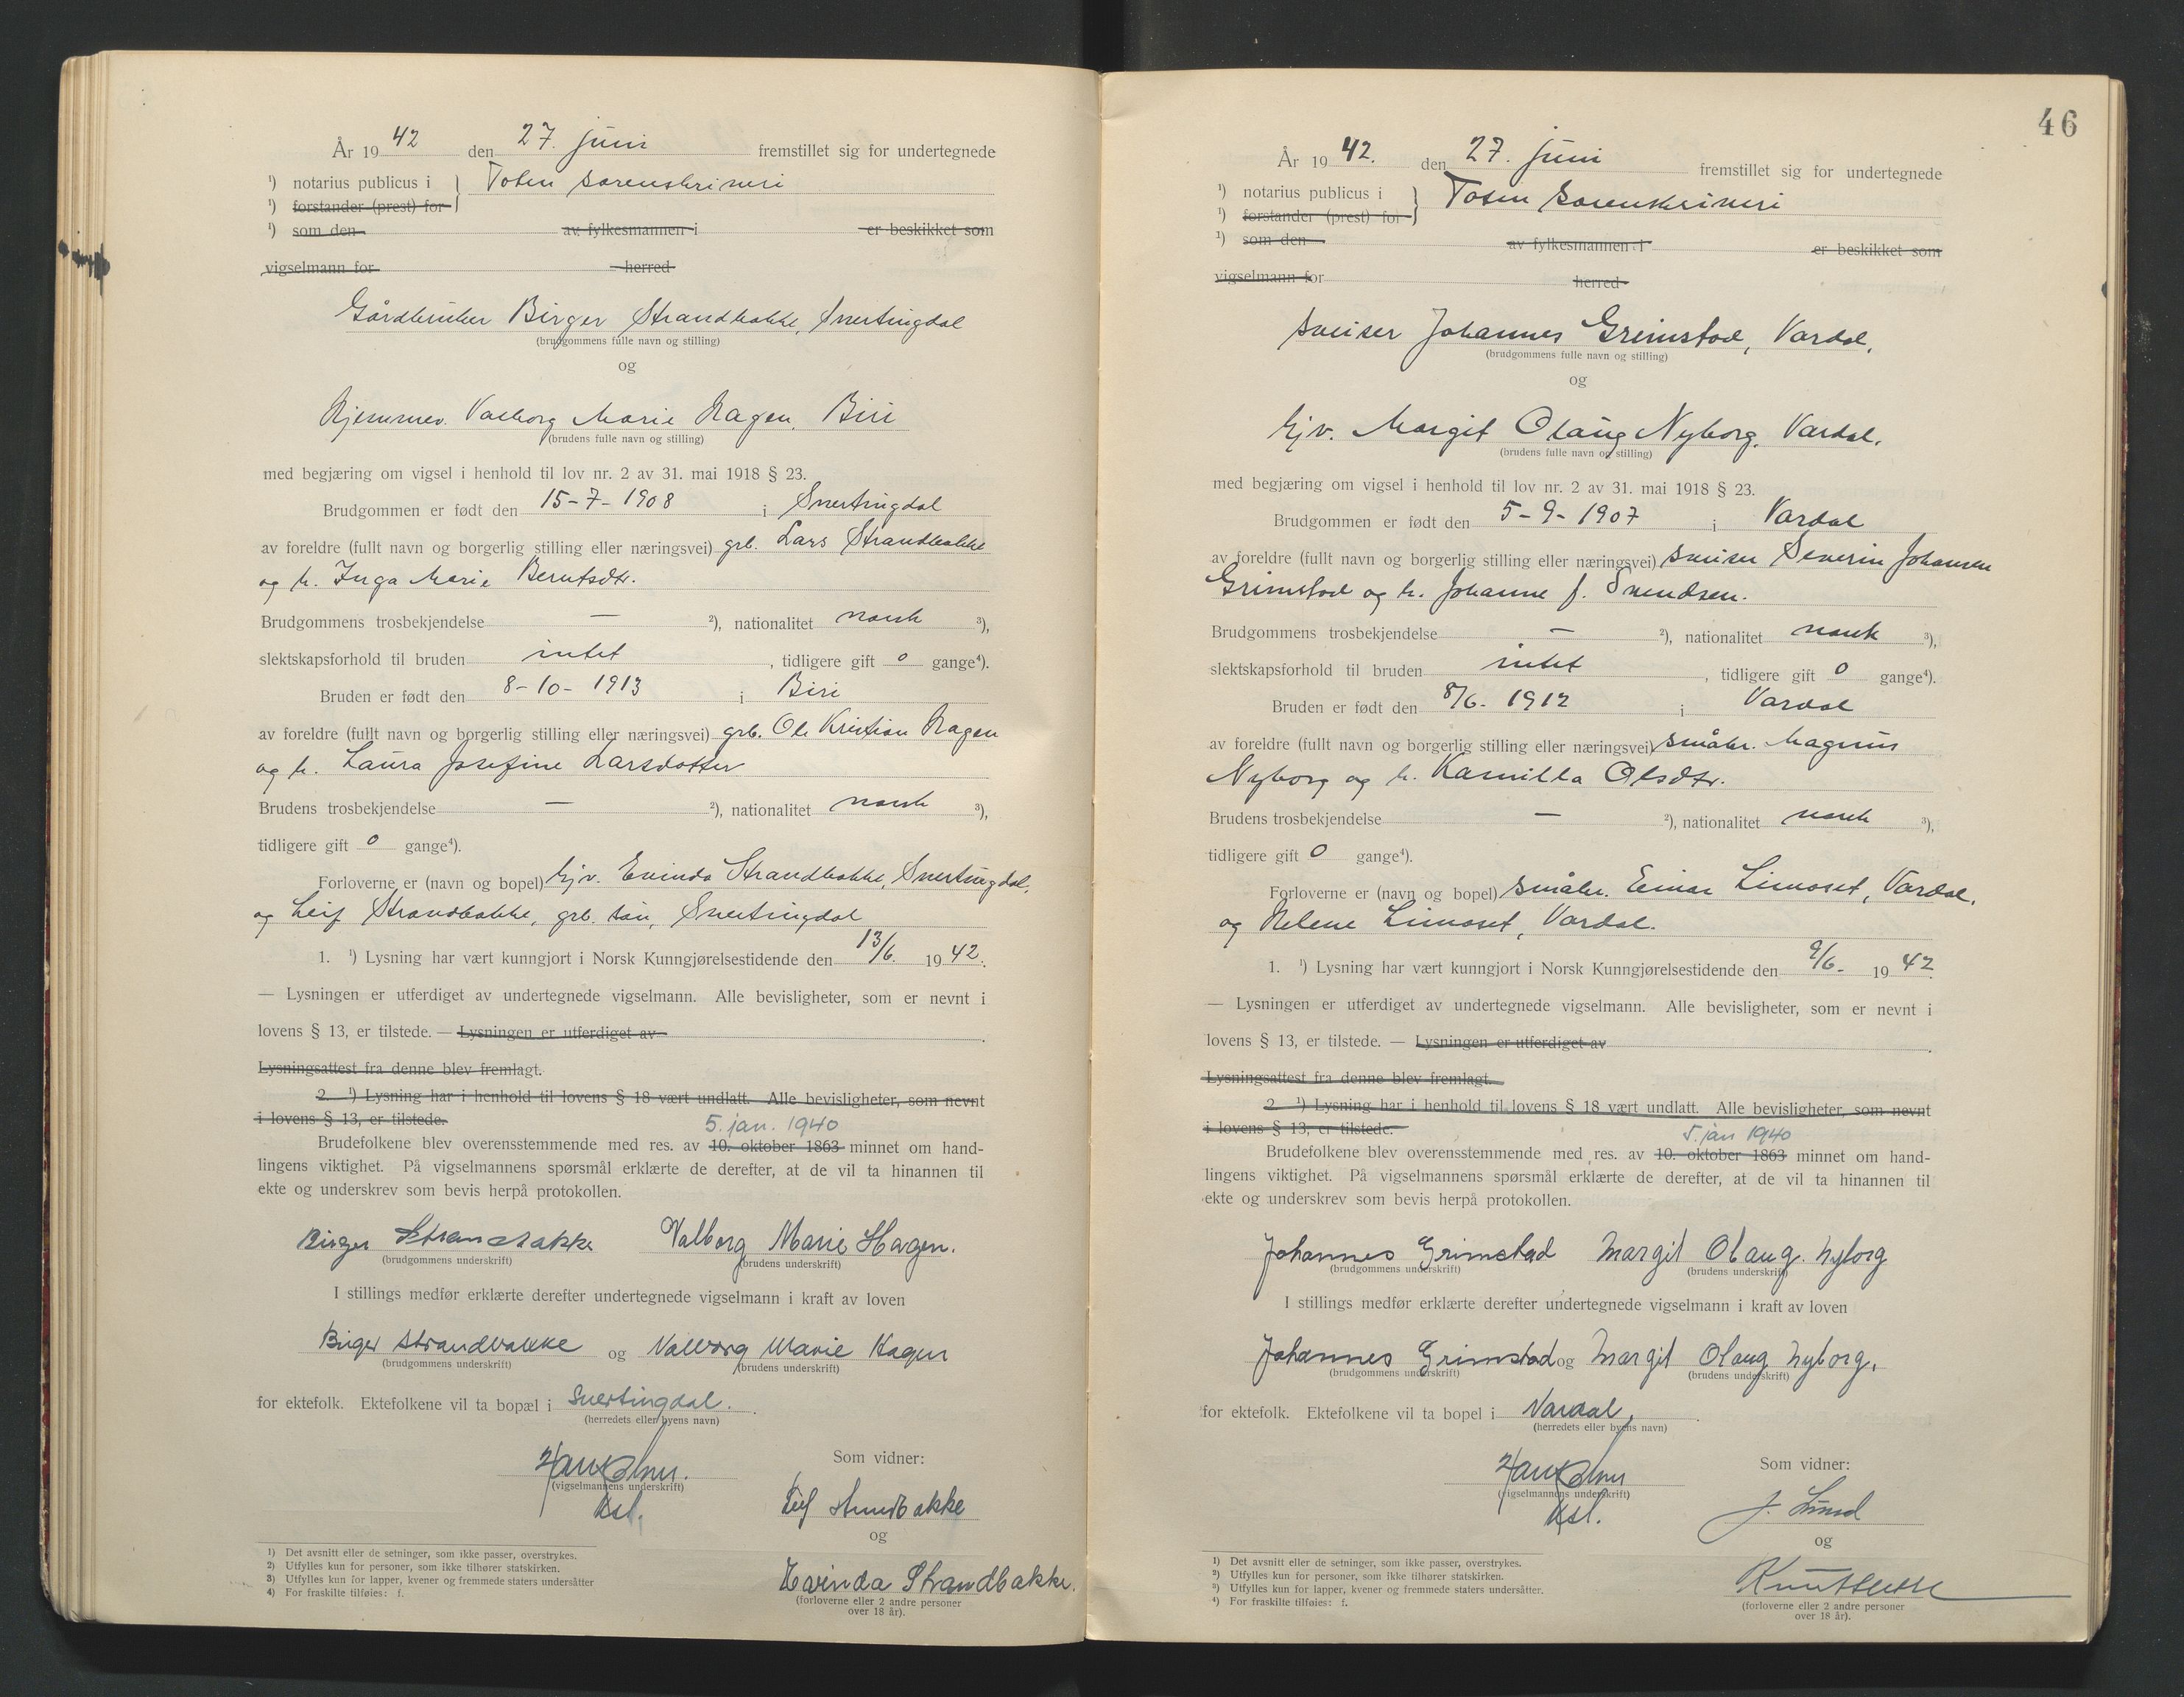 År 19 42 den 27. juni fremstillet sig for undertegnede
¹) notarius publicus i } Toten sorenskriveri
¹) forstander (prest) for
¹) som den av fylkesmannen i er beskikket som
vigselmann for herred
Gårdbruker Birger Strandbakke, Snertingdal
(brudgommens fulle navn og stilling)
og
Hjemmev. Valborg Marie Hagen, Biri
(brudens fulle navn og stilling)
med begjæring om vigsel i henhold til lov nr. 2 av 31. mai 1918 § 23.
Brudgommen er født den 15-7-1908 i Snertingdal
av foreldre (fullt navn og borgerlig stilling eller næringsvei) grb. Lars Strandbakke
og h. Inga Marie Berntsdtr.
Brudgommens trosbekjendelse — ²), nationalitet norsk ³),
slektskapsforhold til bruden intet, tidligere gift 0 gange⁴).
Bruden er født den 8-10-1913 i Biri
av foreldre (fullt navn og borgerlig stilling eller næringsvei) grb. Ole Kristian Hagen
og h. Laura Josefine Larsdotter
Brudens trosbekjendelse — ²), nationalitet norsk ³),
tidligere gift 0 gange⁴).
Forloverne er (navn og bopel) hjv. Evinda Strandbakke, Snertingdal,
og Leif Strandbakke, grb. søn, Snertingdal
1. ¹) Lysning har vært kunngjort i Norsk Kunngjørelsestidende den 13/6. 19 42.
— Lysningen er utferdiget av undertegnede vigselmann. Alle bevisligheter, som er nevnt i
lovens § 13, er tilstede. — Lysningen er utferdiget av
Lysningsattest fra denne blev fremlagt.
2. ¹) Lysning har i henhold til lovens § 18 vært undlatt. Alle bevisligheter, som nevnt
i lovens § 13, er tilstede.
5. jan. 1940
Brudefolkene blev overensstemmende med res. av 10. oktober 1863 minnet om hand-
lingens viktighet. På vigselmannens spørsmål erklærte de derefter, at de vil ta hinannen til
ekte og underskrev som bevis herpå protokollen.
Birger Strandbakke Valborg Marie Hagen.
(brudgommens underskrift) (brudens underskrift)
I stillings medfør erklærte derefter undertegnede vigselmann i kraft av loven
Birger Strandbakke og Valborg Marie Hagen
(brudgommens underskrift) (brudens underskrift)
for ektefolk. Ektefolkene vil ta bopæl i Snertingdal.
(herredets eller byens navn)
Som vidner:
(vigselmannens underskrift)
Leif Strandbakke
og
Evinda Strandbakke.
(forloverne eller 2 andre personer
over 18 år).
1) Det avsnitt eller de setninger, som ikke passer, overstrykes.
2) Utfylles kun for personer, som ikke tilhører statskirken.
3) Utfylles kun for lapper, kvener og fremmede staters undersåtter
4) For fraskilte tilføies: f.
46
År 19 42. den 27. juni fremstillet sig for undertegnede
¹) notarius publicus i } Toten sorenskriveri
¹) forstander (prest) for
¹) som den av fylkesmannen i er beskikket som
vigselmann for herred
sveiser Johannes Grimstad, Vardal,
(brudgommens fulle navn og stilling)
og
hjv. Margit Olaug Nyborg, Vardal.
(brudens fulle navn og stilling)
med begjæring om vigsel i henhold til lov nr. 2 av 31. mai 1918 § 23.
Brudgommen er født den 5-9-1907 i Vardal
av foreldre (fullt navn og borgerlig stilling eller næringsvei) sveiser Severin Johansen
Grimstad og h. Johanne J. Svendsen.
Brudgommens trosbekjendelse — ²), nationalitet norsk ³),
slektskapsforhold til bruden intet, tidligere gift 0 gange⁴).
Bruden er født den 8/6. 1912 i Vardal
av foreldre (fullt navn og borgerlig stilling eller næringsvei) småbr. Magnus
Nyborg og h. Kamilla Olsdtr.
Brudens trosbekjendelse — ²), nationalitet norsk ³),
tidligere gift 0 gange⁴).
Forloverne er (navn og bopel) småbr. Einar Limoset, Vardal,
og Helene Limoset, Vardal.
1. ¹) Lysning har vært kunngjort i Norsk Kunngjørelsestidende den 9/6. 19 42.
— Lysningen er utferdiget av undertegnede vigselmann. Alle bevisligheter, som er nevnt i
lovens § 13, er tilstede. — Lysningen er utferdiget av
Lysningsattest fra denne blev fremlagt.
2. ¹) Lysning har i henhold til lovens § 18 vært undlatt. Alle bevisligheter, som nevnt
i lovens § 13, er tilstede.
5. jan 1940
Brudefolkene blev overensstemmende med res. av 10. oktober 1863 minnet om hand-
lingens viktighet. På vigselmannens spørsmål erklærte de derefter, at de vil ta hinannen til
ekte og underskrev som bevis herpå protokollen.
Johannes Grimstad Margit Olaug. Nyborg
(brudgommens underskrift) (brudens underskrift)
I stillings medfør erklærte derefter undertegnede vigselmann i kraft av loven
Johannes Grimstad og Margit Olaug Nyborg.
(brudgommens underskrift) (brudens underskrift)
for ektefolk. Ektefolkene vil ta bopel i Vardal,
(herredets eller byens navn)
Som vidner:
(vigselmannens underskrift)
J. Lund
og
(forloverne eller 2 andre personer
over 18 år).
1) Det avsnitt eller de setninger, som ikke passer, overstrykes.
2) Utfylles kun for personer, som ikke tilhører statskirken.
3) Utfylles kun for lapper, kvener og fremmede staters undersåtter.
4) For fraskilte tilføies: f.